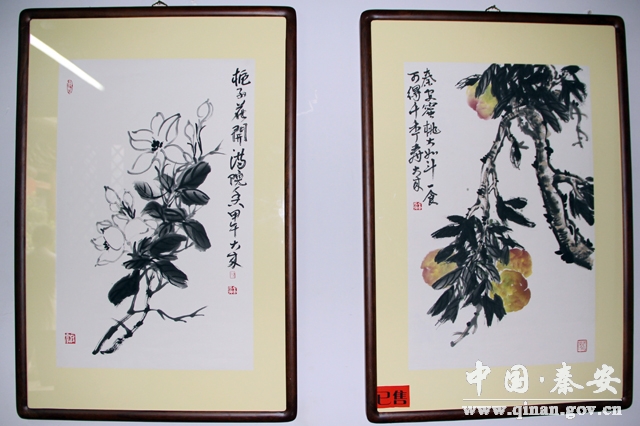 栀子花開满院 甲午大
秦安蜜桃大如斗一食
可得千年壽大
已售
中国·秦安
www.qinan.gov.cn